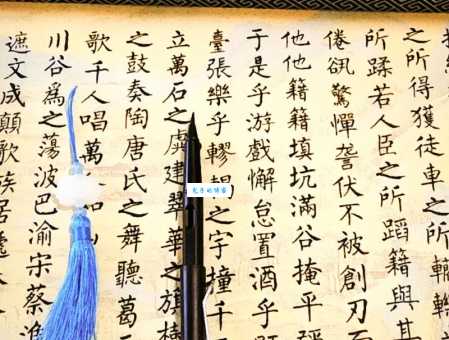 之所得獲徒車之所轔轢
所蹂若人臣之所蹈籍與其
倦㕁驚憚讋伏不被創刃而
他他籍籍填坑滿谷掩平
于是乎游戲懈怠置酒乎
臺張樂乎轇之宇撞千
立萬石之虡建翠華之旗
之鼓奏陶唐氏之舞聽葛
歌千人唱萬
川谷為之蕩波巴渝宋蔡淮
遮文成顛歌族居遞